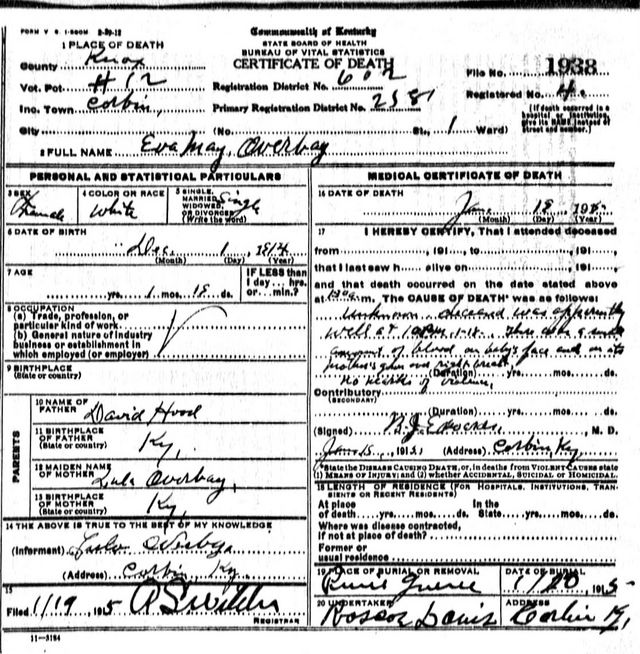 FORM V. S. 1-500M 2-20-12
Commonwealth of Kentucky
STATE BOARD OF HEALTH
BUREAU OF VITAL STATISTICS
CERTIFICATE OF DEATH
1 PLACE OF DEATH
County Knox
Vot. Pct #12
Inc. Town Corbin,
City
Registration District No. 602
Primary Registration District No. 2381
File No. 1938
Registered No. 4
(If death occurred in a hospital or institution, give its NAME instead of street and number.)
(No. St., 1 Ward)
2 FULL NAME Eva May, Overbay
PERSONAL AND STATISTICAL PARTICULARS
3 SEX
Female
4 COLOR OR RACE
White
5 SINGLE, MARRIED, WIDOWED, OR DIVORCED (Write the word)
Single
6 DATE OF BIRTH
Dec, 1, 1914
(Month) (Day) (Year)
7 AGE
yrs. 1 mos. 18 ds.
IF LESS than 1 day... hrs. or... min.?
8 OCCUPATION
(a) Trade, profession, or particular kind of work
(b) General nature of industry business or establishment in which employed (or employer)
9 BIRTHPLACE
(State or country)
PARENTS
10 NAME OF FATHER
David Hood
11 BIRTHPLACE OF FATHER
(State or country)
Ky,
12 MAIDEN NAME OF MOTHER
Lula Overbay,
13 BIRTHPLACE OF MOTHER
(State or country)
Ky,
14 THE ABOVE IS TRUE TO THE BEST OF MY KNOWLEDGE
(Informant)
(Address) Corbin, Ky.
15
Filed 1/19, 1915
REGISTRAR
11-3184
MEDICAL CERTIFICATE OF DEATH
16 DATE OF DEATH
Jan. 18 1915
(Month) (Day) (Year)
17 I HEREBY CERTIFY, That I attended deceased
from 191 to 191
that I last saw h alive on 191
and that death occurred on the date stated above
at m. The CAUSE OF DEATH* was as follows:
Unknown deceased was apparently
well at 1-18. There was a small
amount of blood on baby's face and on its
mother's gown and right breast,
(Duration) yrs. mos. ds.
No marks of violence,
Contributory
(SECONDARY)
(Duration) yrs. mos. ds.
(Signed) M. D.
1915 (Address) Corbin Ky
*State the DISEASE CAUSING DEATH, or, in deaths from VIOLENT CAUSES state (1) MEANS OF INJURY; and (2) whether ACCIDENTAL, SUICIDAL or HOMICIDAL.
18 LENGTH OF RESIDENCE (FOR HOSPITALS, INSTITUTIONS, TRANSIENTS OR RECENT RESIDENTS)
At place of death yrs. mos. ds. In the State yrs. mos. ds.
Where was disease contracted, if not at place of death?
Former or usual residence
19 PLACE OF BURIAL OR REMOVAL
DATE OF BURIAL
1/20 1915
20 UNDERTAKER
Roscoe Davis
ADDRESS
Corbin Ky,